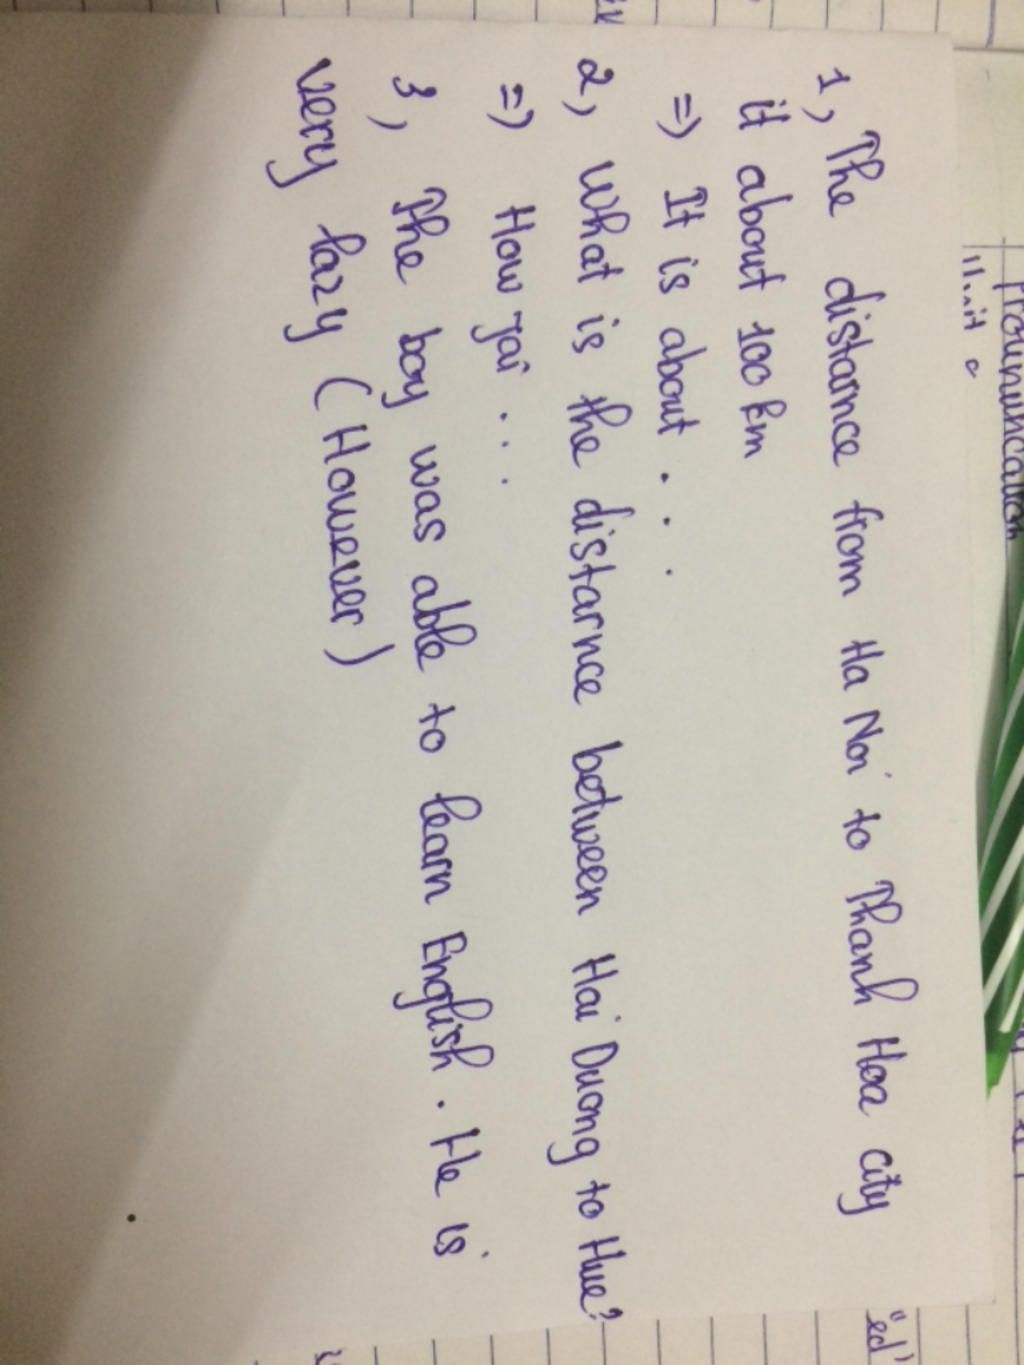 1, The distance from Ha Noi to Thanh Hoa city
it about 100 km
=) It is about . . .
2, What is the distarnce between Hai Duong to Hue?
=) How far . . .
3, The boy was able to learn English . He is
very lazy ( However )
Proununcation
"ed"